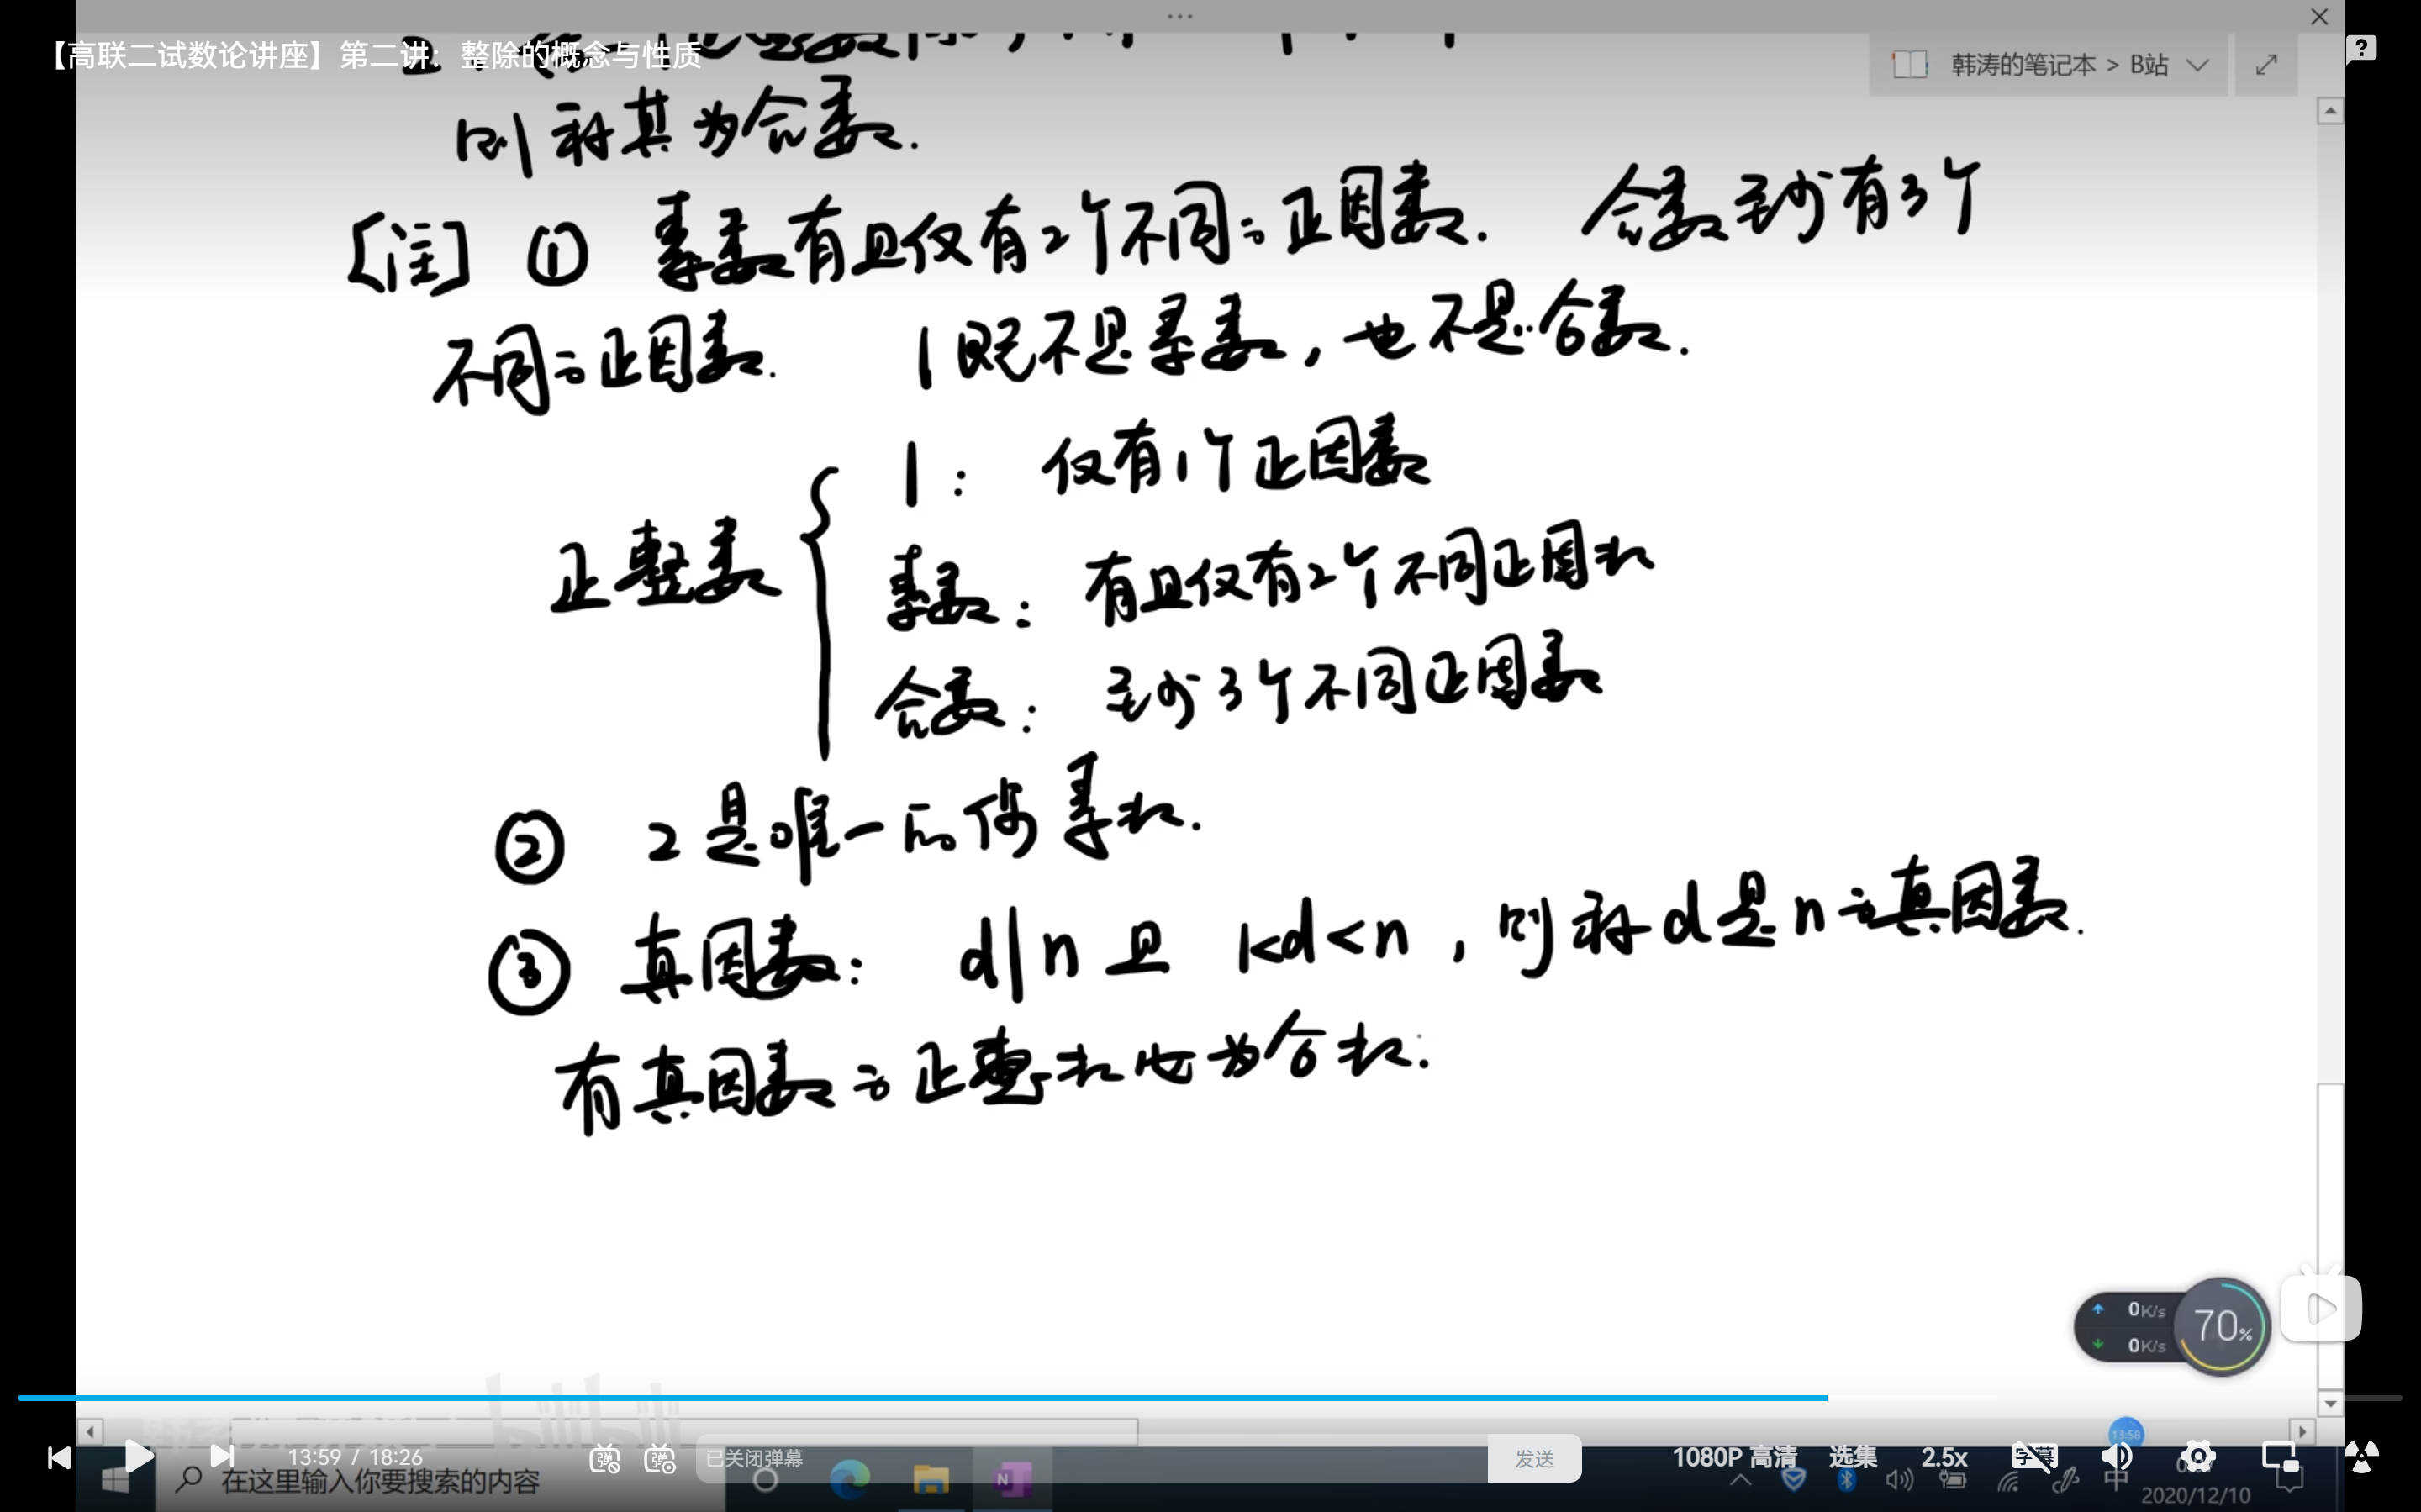 【高联二试数论讲座】第二讲：整除的概念与性质
韩涛的笔记本 > B站
则称其为合数.
[注] ① 素数有且仅有2个不同的正因数. 合数至少有3个
不同的正因数. 1既不是素数, 也不是合数.
正整数
1: 仅有1个正因数
素数: 有且仅有2个不同正因数
合数: 至少3个不同正因数
② 2是唯一的偶素数.
③ 真因数: d|n 且 1<d<n, 则称d是n的真因数.
有真因数的正整数必为合数.
0K/s
0K/s
70%
bilibili
13:58
13:59 / 18:26
弹
弹
已关闭弹幕
发送
1080P 高清
选集
2.5x
字幕
在这里输入你要搜索的内容
N
中
2020/12/10